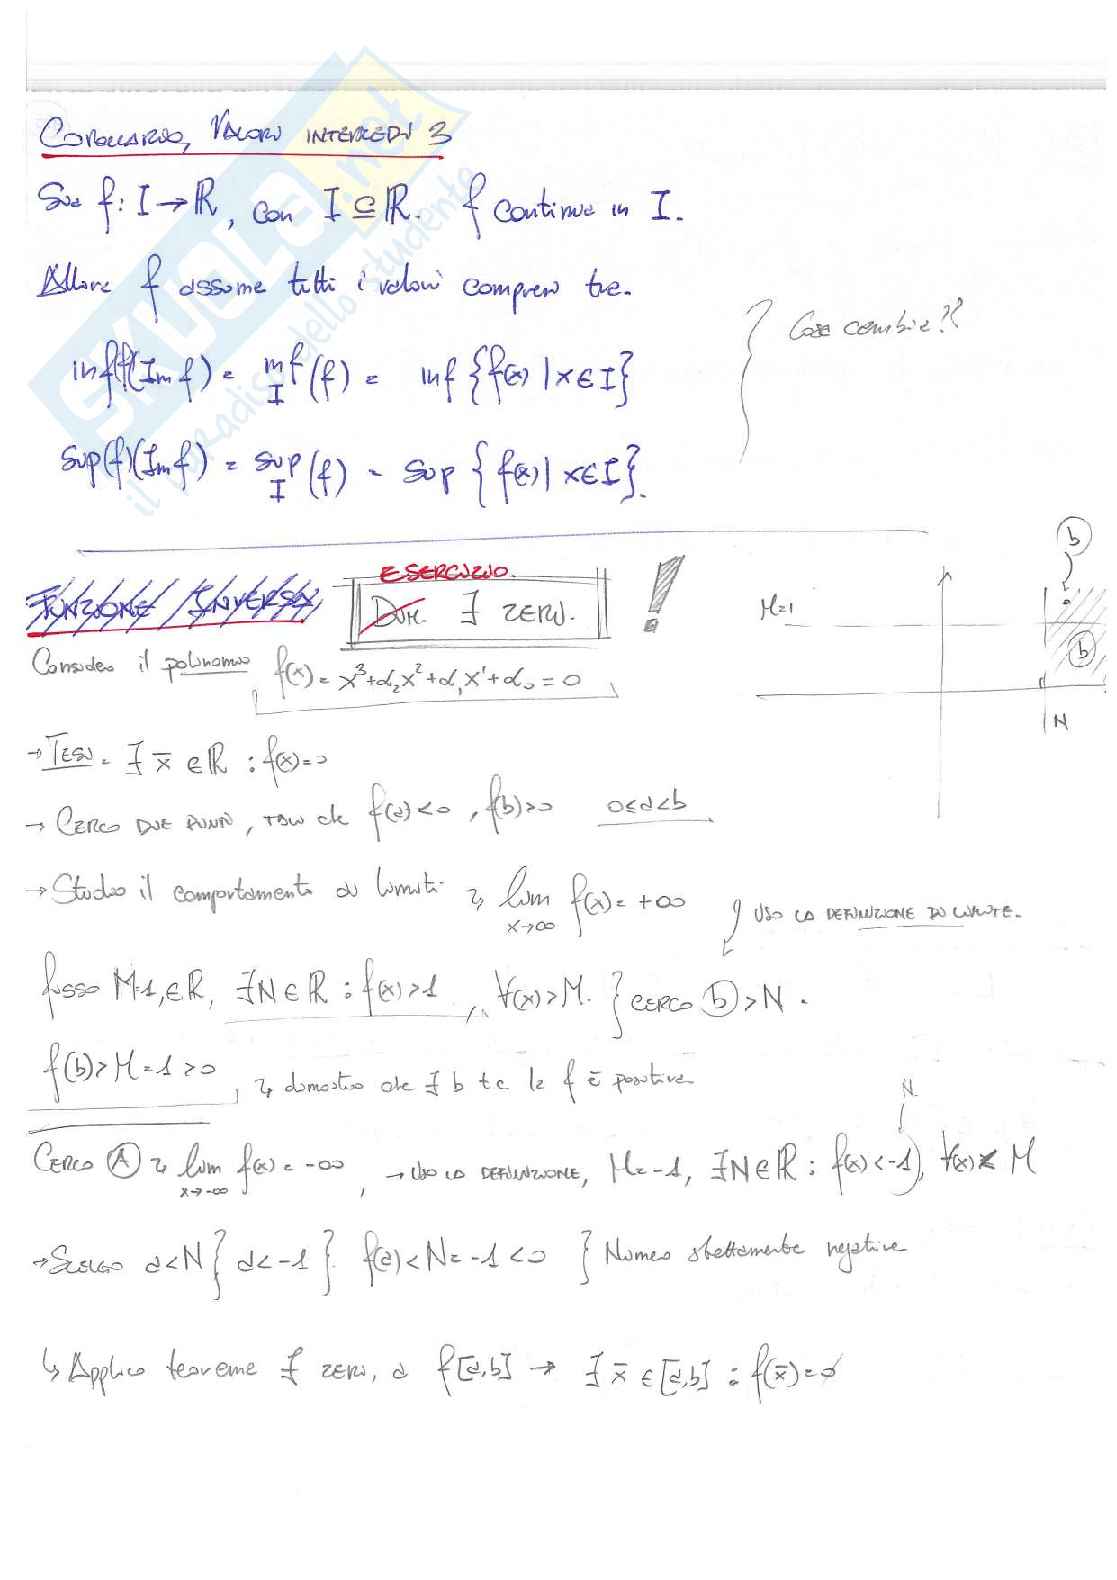 Corollario, Valori intermedi 3
Sia f: I → ℝ, con I ⊆ ℝ. f continua in I.
Allora f assume tutti i valori compresi tra.
Cosa cambia??
inf(f)(Im f) = inf_I (f) = inf {f(x) | x ∈ I}
sup(f)(Im f) = sup_I (f) = sup {f(x) | x ∈ I}.
SKUOLA.net
il paradiso dello studente
b
ESERCIZIO.
FUNZIONE INVERSA
Dim. ∃ ZERI. !
M=1
b
Considero il polinomio f(x) = x³+α₂x²+α₁x¹+α₀ = 0
N
→ TESI = ∃ x̄ ∈ ℝ : f(x)=0
→ CERCO DUE PUNTI, TALI che f(a)<0, f(b)>0 0≤a<b
→ Studio il comportamento ai limiti ↳ lim x→∞ f(x) = +∞
USO LA DEFINIZIONE DI LIMITE.
fisso M=1, ∈ ℝ, ∃N ∈ ℝ : f(x)>1, ∀(x)>M. } CERCO b > N.
f(b)>M=1>0, ↳ dimostro che ∃ b t.c. la f è positiva
N.
CERCO A ↳ lim x→-∞ f(x) = -∞, → USO LA DEFINIZIONE, M=-1, ∃N∈ℝ : f(x)<-1), ∀(x)< M
→ SCELGO a<N { a<-1 } f(a)<N=-1<0 } Numero strettamente negativo
↳ Applico teorema ∃ zeri, a f[a,b] → ∃ x̄ ∈ [a,b] : f(x̄)=0